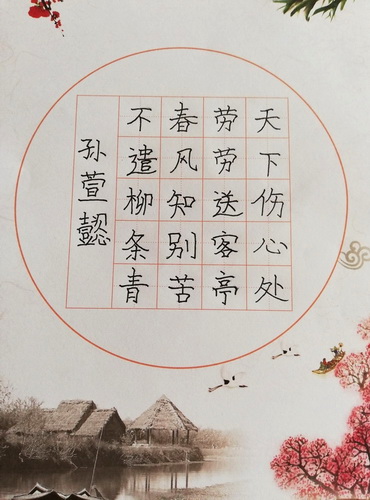 天下伤心处
劳劳送客亭
春风知别苦
不遣柳条青
孙萱懿